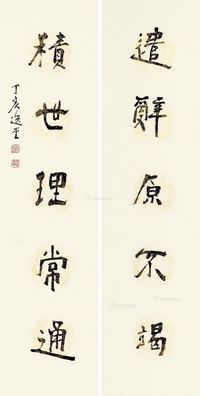 遣辭原不竭
積世理常通
丁亥選堂